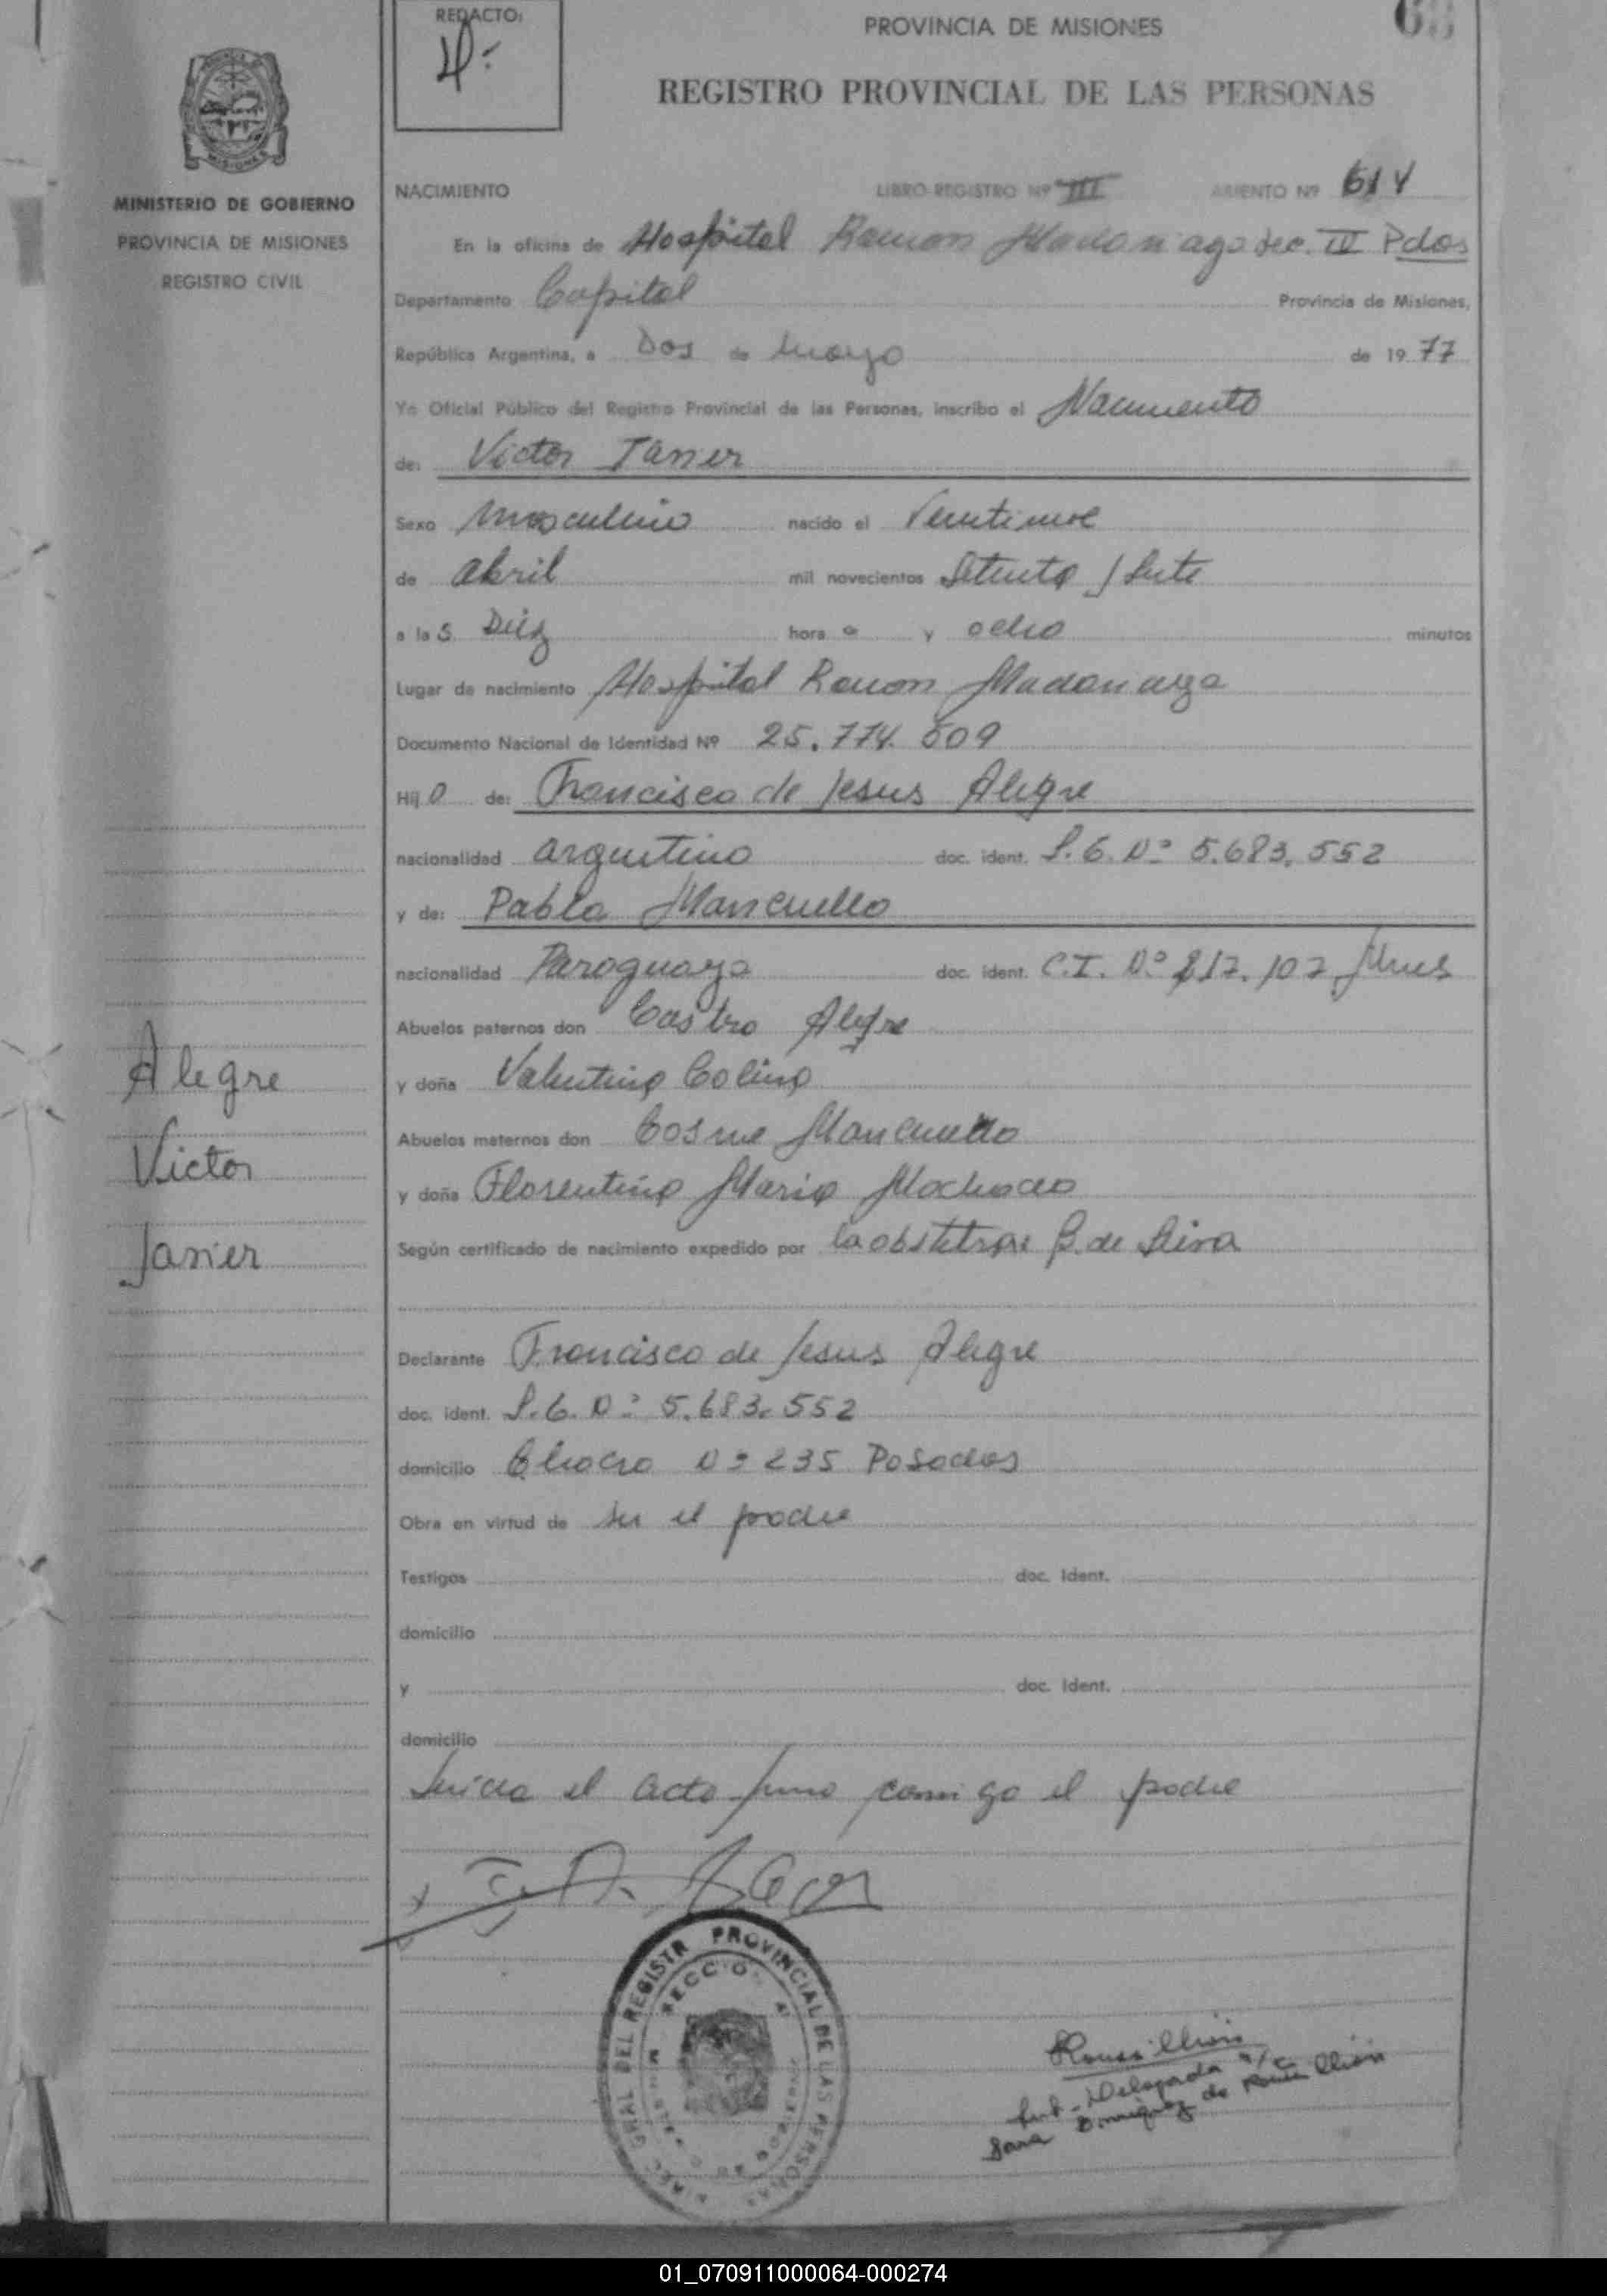 REDACTO:
PROVINCIA DE MISIONES
REGISTRO PROVINCIAL DE LAS PERSONAS
MISIONES
MINISTERIO DE GOBIERNO
PROVINCIA DE MISIONES
REGISTRO CIVIL
NACIMIENTO LIBRO-REGISTRO Nº III ASIENTO Nº 614
En la oficina de Hospital Ramon Madariaga Sec. IV Pdas
Departamento Capital Provincia de Misiones,
República Argentina, a Dos de Mayo de 1977
Yo Oficial Público del Registro Provincial de las Personas, inscribo el Nacimiento
de: Victor Javier
Sexo Masculino nacido el
de abril mil novecientos Setenta y Siete
a las Diez horas y ocho minutos
Lugar de nacimiento Hospital Ramon Madariaga
Documento Nacional de Identidad Nº 25.774.509
Hijo de: Francisco de Jesus Alegre
nacionalidad argentino doc. ident. Nº 5.683.552
y de: Pabla Mancuello
nacionalidad Paraguaya doc. ident. C.I. Nº 817.107 Mnes
Abuelos paternos don Castro Alegre
y doña Valentina Colina
Abuelos maternos don Cosme Mancuello
y doña Florentina Maria Machado
Según certificado de nacimiento expedido por la obstetra: de
Declarante Francisco de Jesus Alegre
doc. ident. Nº 5.683.552
domicilio Chacra Nº 235 Posadas
Obra en virtud de ser el padre
Testigos doc. ident.
domicilio
y doc. ident.
domicilio
Leida el acta firma conmigo el padre
Alegre
Victor
Javier
DEL REGISTR PROVINCIAL DE LAS PERSONAS
SECCIO
Roussillion
Sub-Delegada a/c
Sara de Roussillion
01_070911000064-000274